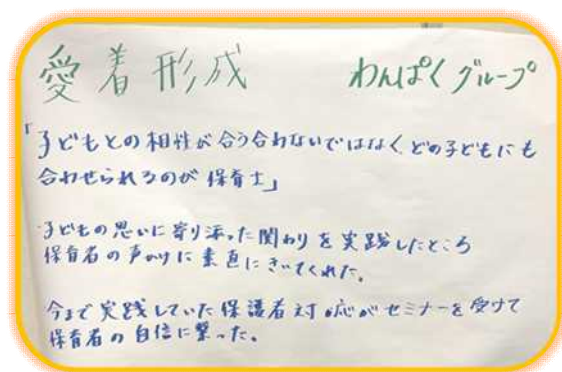 愛着形成 わんぱくグループ
「子どもとの相性が合う合わないではなく、どの子どもにも
合わせられるのが保育士」
子どもの思いに寄り添った関わりを実践したところ
保育者の声かけに素直にきいてくれた。
今まで実践していた保護者対応がセミナーを受けて
保育者の自信に繋った。